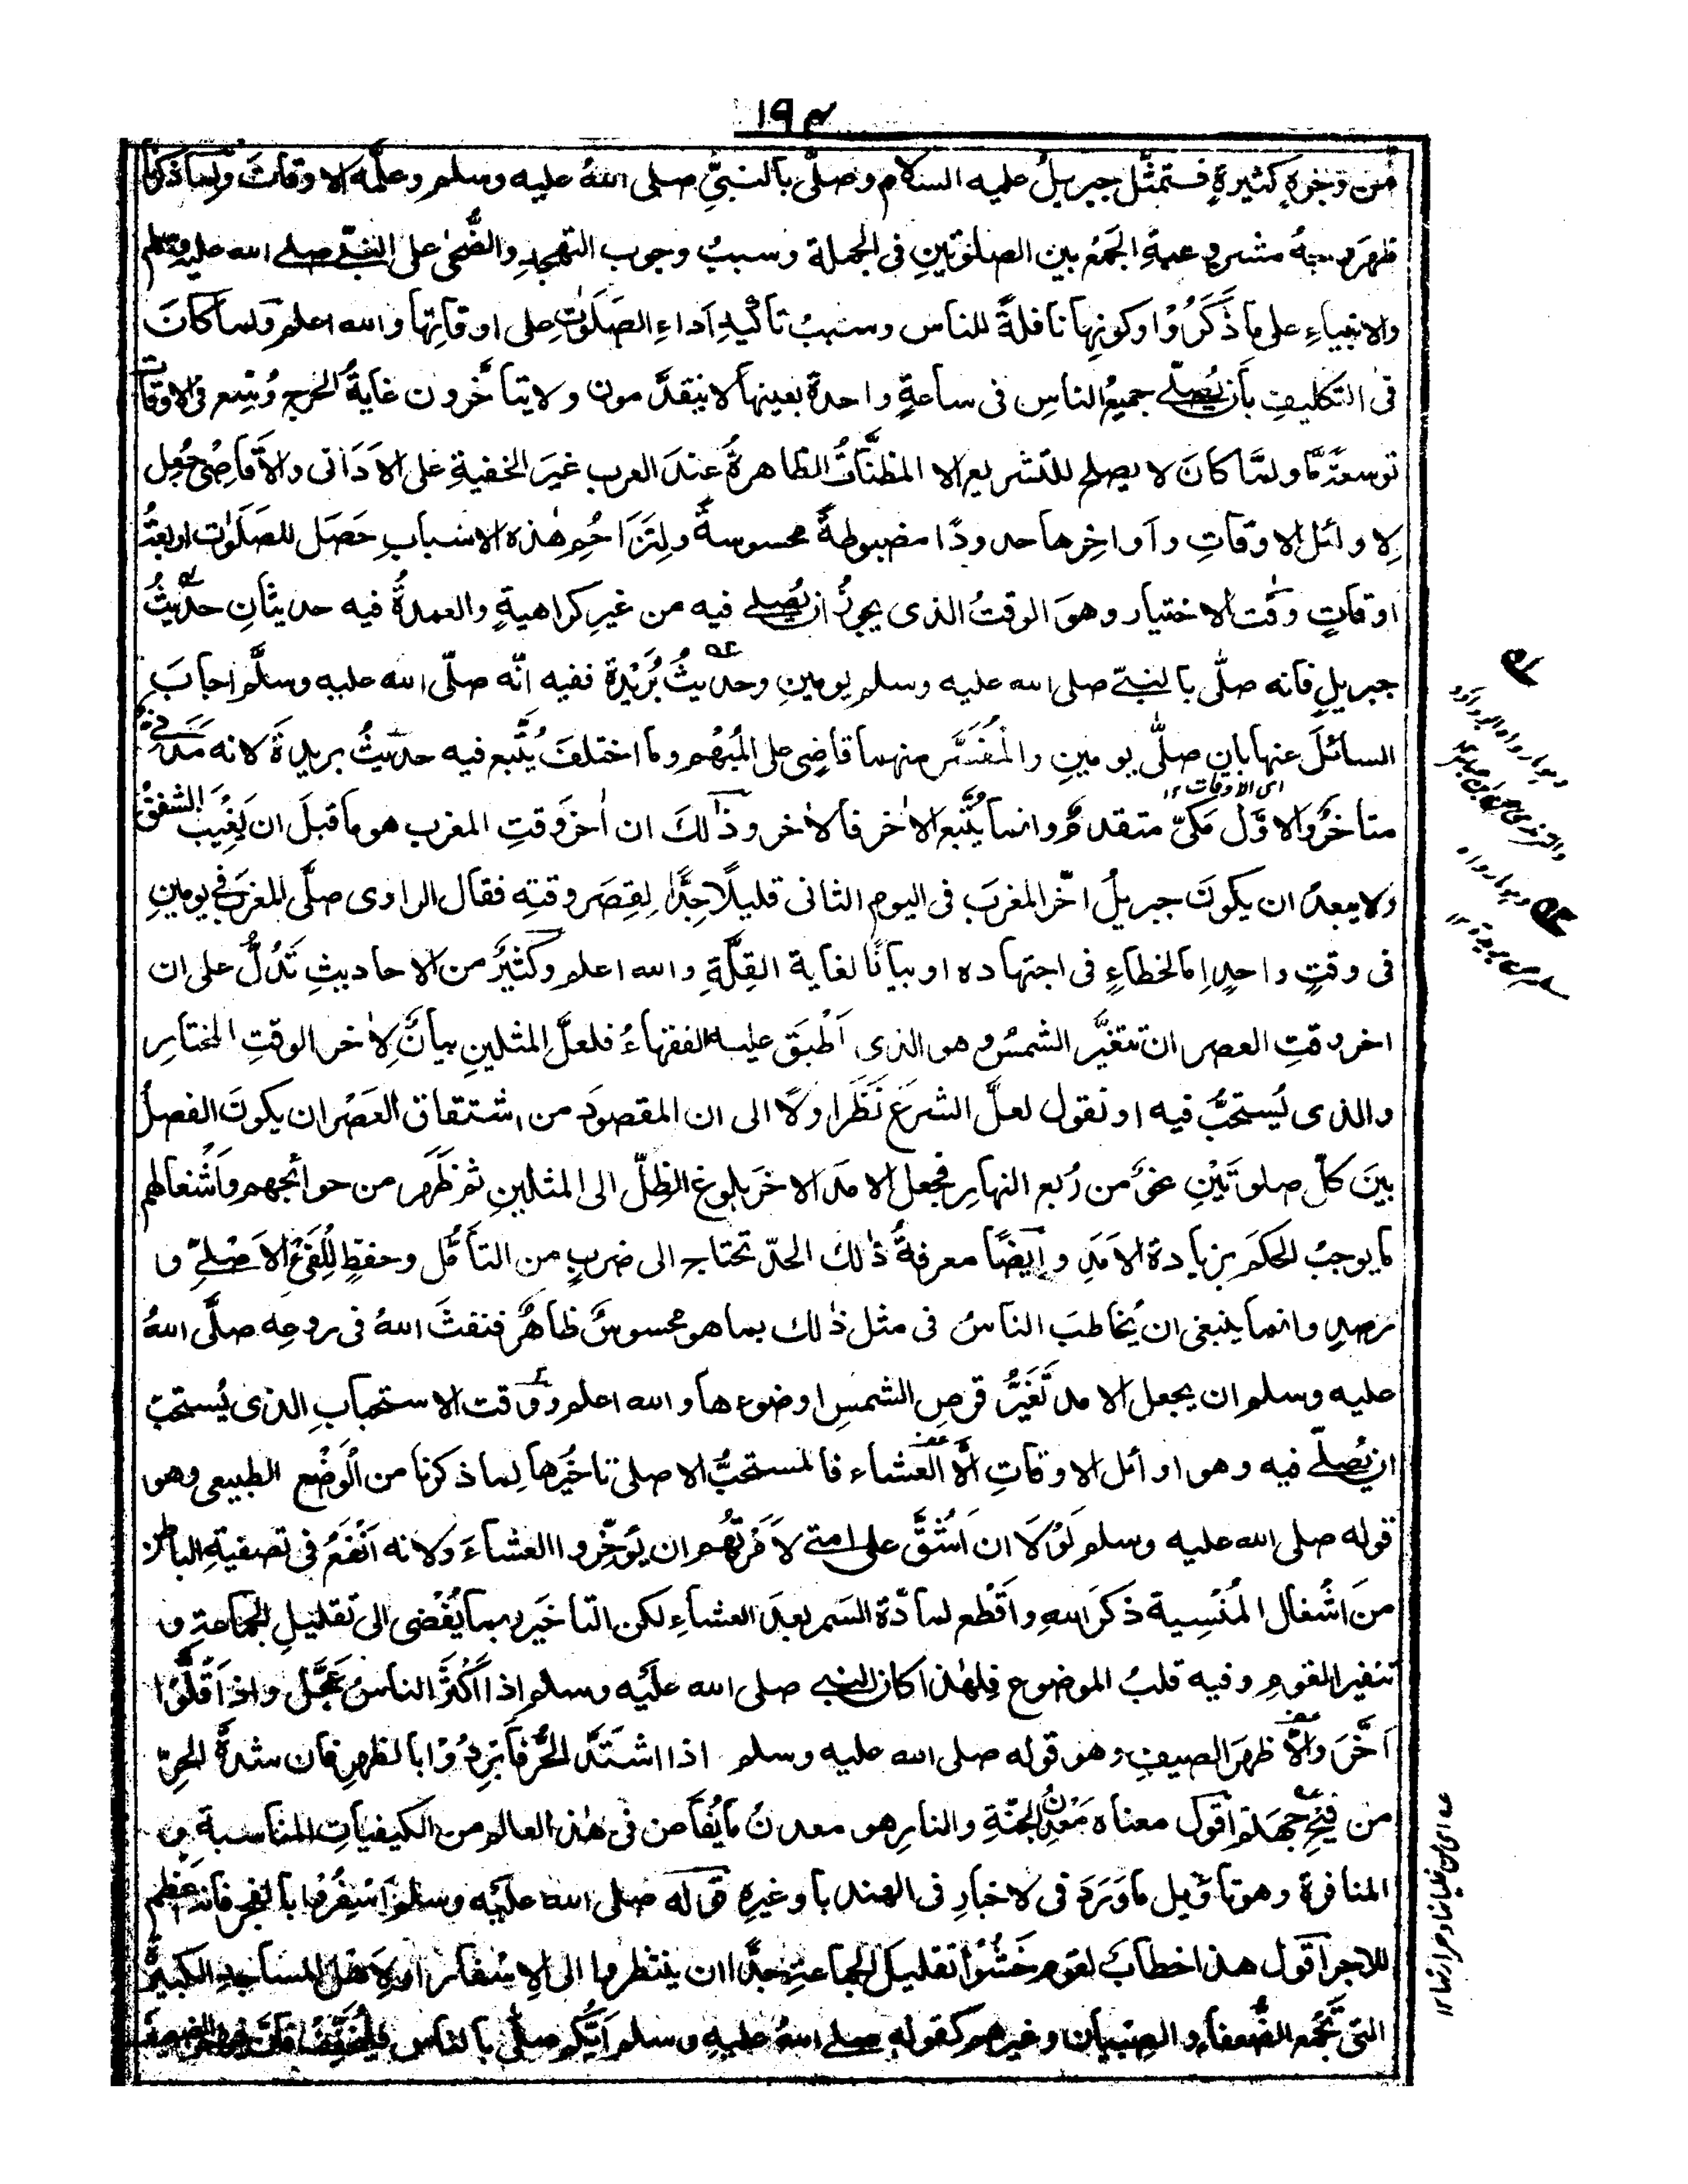 ١٩٣
من وجوهٍ كثيرةٍ فتمثّل جبريلُ عليه السلام وصلّى بالنبيِّ صلى اللهُ عليه وسلم وعلّمه الاوقاتَ ولما ذكرنا
ظهرَ وجهُ مشروعيةِ الجَمع بين الصلٰوتينِ فى الجملة وسببُ وجوب التهجدِ والضُّحٰى على النبيّ صلے الله عليه وسلم
والانبياءِ على ما ذَكَرُوْا وكونِها نافلةً للناس وسببُ تاكيدِ اَداءِ الصَلَوٰتِ على اوقاتِها والله اعلم ولما كانَ
فى التكليفِ بأن يُصلّے جميعُ الناسِ فى ساعةٍ واحدة بعينها لا يتقدَّمون ولا يتأخّرون غايةُ الحرج وُسِّع فى الاوقات
توسعةً مَّا ولمّا كانَ لا يصلح للتشريع الا المظنّاتُ الظاهرةُ عندَ العرب غيرَ الخفيةِ على الاَدَانى والاَقاصِىْ جُعِل
لِاوائل الاوقاتِ وأواخِرها حدودًا مضبوطةً محسوسةً ولِتَزَاحُمِ هٰذه الاسبابِ حَصَل للصَلَوٰت اربعةُ
اوقاتٍ وقت الاختيار وهوَ الوقتُ الذى يجوزُ ان يُصلے فيه من غيرِ كراهيةٍ والعمدةُ فيه حديثانِ حديثُ
جبريلٍ فانه صلّى بالنبيّے صلى الله عليه وسلم يومينِ وحديثُ بُرَيْدة ففيه انّه صلّى الله عليه وسلَّم اجابَ
السائلَ عنها بان صلّى يومينِ والمُفَسَّر منهما قاضٍى على المُبْهَم وما اختلفَ يُتَّبع فيه حديثُ بريدةَ لانه مَدَنىٌّ
اى الاوقات ١٢
متاخرٌ والاوّل مَكىّ متقدمٌ وانما يُتَّبع الاٰخر فالاٰخر وذٰلكَ ان اٰخرَ وقتِ المغرب هو ما قبلَ ان يَغِيْبَ الشفقُ
ولا يبعدُ ان يكونَ جبريلُ اخّر المغرَب فى اليوم الثانى قليلًا جدًّا لِقِصَر وقتِه فقال الراوى صلَّى المغربَ فے يومينِ
فى وقتٍ واحدٍ اما لخطاءٍ فى اجتهاده او بيانًا لغاية القِلّةِ والله اعلم وكثيرٌ من الاحاديثِ تَدُلُّ على ان
اخر وقتِ العصر ان تتغيَّر الشمسُ وهو الذى اَطْبَقَ عليه الفقهاءُ فلعلَّ المثلينِ بيانٌ لاٰخر الوقتِ المختارِ
والذى يُستحبُّ فيه او نقول لعلَّ الشرعَ نَظَرَ اولًا الى ان المقصودَ من اشتقاق العَصْر ان يكونَ الفصلُ
بينَ كلّ صلوتَيْنِ نحوٌ من رُبع النهارِ فجعل الامدَ الاخرَ بلوغَ الظلّ الى المثلينِ ثم ظَهَر من حوائجهم واَشغالهم
ما يوجبُ الحكمَ بزيادة الاَمَدِ وايضًا معرفةُ ذٰلك الحدّ تحتاج الى ضربٍ من التأمُّل وحفظٍ للفَىْءِ الاَصْلےّ و
رصدٍ وانما ينبغى ان يُخاطبَ الناسُ فى مثل ذٰلك بما هو محسوسٌ ظاهرٌ فنفثَ اللهُ فى روعه صلَّى اللهُ
عليه وسلم ان يجعل الامدَ تَغَيُّرَ قرصِ الشمسِ او ضوءها والله اعلم ووقت الاستحبابِ الذى يُستحبّ
ان يُصلّے فيه وهو اوائل الاوقاتِ الّا العشاء فالمستحبُّ الاصلى تاخيرُها لِما ذكرنا من الوَضْع الطبيعى وهو
قوله صلى الله عليه وسلم لَوْلَا ان اَشُقَّ على امتے لاَمَرْتُهم ان يؤخّروا العشاءَ ولانه اَنْفَعُ فى تصفيةِ الباطن
منَ اشغال المُنْسِية ذكرَ اللهِ واَقْطع لمادّة السَمر بعدَ العشاءِ لكن التاخيرَ ربما يُفْضى الى تقليلِ الجماعةِ و
تنفير القومِ وفيه قلبُ الموضوع فلِهٰذا كان النبے صلى الله عليه وسلم اذا اَكْثَرَ الناسُ عَجَّل واذا قَلُّوْا
اَخَّرَ والّا ظهرَ الصيفِ وهو قوله صلى الله عليه وسلم اذا اشتدَّ الحرُّ فأبْرِدُوْا بالظهرِ فان شدةَ الحرِّ
من فَيْحِ جَهنّم اقول معناه مَعْدِنُ الجنّةِ والنارِ هو معدنُ ما يُفاض فى هٰذا العالم من الكيفياتِ المناسبةِ و
المنافرة وهو تاويل ما وَرَدَ فى لاخبارِ فى الهندبا وغيرِه قوله صلى الله عليه وسلم اَسْفِرُوْا بالفجرِ فانه اعظم
للاجر اقول هذا خطابٌ لقومٍ خَشُوْا تقليلَ الجماعةِ جدًّا ان ينتظروا الى الاِسفار او لاَهل المساجدِ الكبيرة
التى تجمع الضُّعفاء والصِبْيان وغيرهم كقوله صلے اللهُ عليه وسلم ايُّكم صلّى بالناس فليُخفّف فانّ فيهم الضعيف
وهو ما رواه ابو داود
والترمذى عن ابن عباس
وهو ما رواه
مسلم عن بريدة ١٢
عه اى من غليانها وحرارتها ١٢